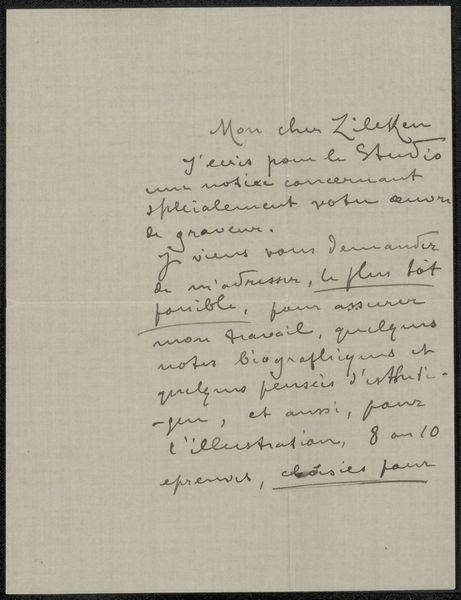 Mon cher Zilcken
J'écris pour le Studio
une notice concernant
spécialement votre œuvre
de graveur.
Je viens vous demander
de m'adresser, le plus tôt
possible, pour assurer
mon travail, quelques
notes biografiques et
quelques pensées d'esthéti-
-que, et aussi, pour
l'illustration, 8 ou 10
épreuves, choisies pour